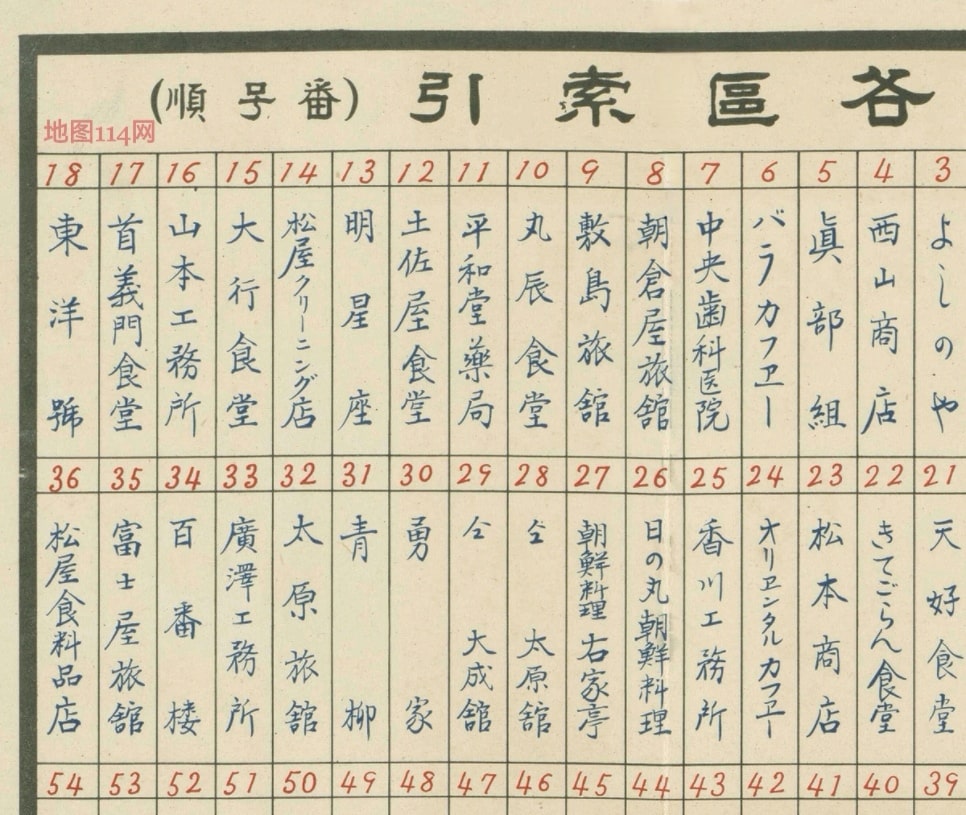 各區索引(番号順)
地图114网
3 よしのや
4 西山商店
5 眞部組
6 バラカフヱー
7 中央歯科医院
8 朝倉屋旅舘
9 敷島旅舘
10 丸辰食堂
11 平和堂藥局
12 土佐屋食堂
13 明星座
14 松屋クリーニング店
15 大行食堂
16 山本工務所
17 首義門食堂
18 東洋號
21 天好食堂
22 きてごらん食堂
23 松本商店
24 オリヱンタルカフヱー
25 香川工務所
26 日の丸朝鮮料理
27 朝鮮料理右家亭
28 仝太原舘
29 仝大成舘
30 勇家
31 青柳
32 太原旅舘
33 廣澤工務所
34 百番楼
35 富士屋旅舘
36 松屋食料品店
39
40
41
42
43
44
45
46
47
48
49
50
51
52
53
54